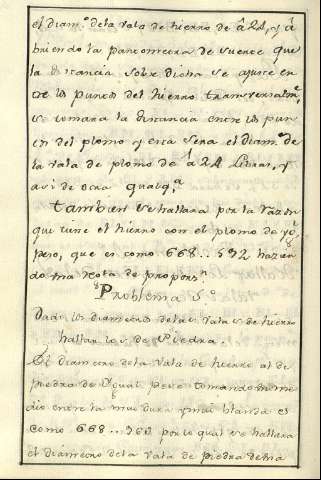 el diam.º de la vala de hierro de â 24, y â
briendo la pantomera de suerte que
la distancia sobre dicha se ajuste en
tre los puntos del hierro transversalm.te
se tomara la distancia entre los pun
tos del plomo y esta sera el diam.º de
la vala de plomo de â 24 Libras, y
asi de otra qualq.ª
Tambien se hallara por la razon
que tiene el hierro con el plomo de
peso, que es como 668...592 hazien
do una de propors.n
Problema 5.º
Dados los diametros de las valas de hierro
hallar los de Piedra
El diametro de la vala de hierro al de
piedra de Ygual peso tomando un me
dio entre la mas dura y mas blanda es
como 668...960 por lo qual se hallara
el diametro de la vala de piedra de una